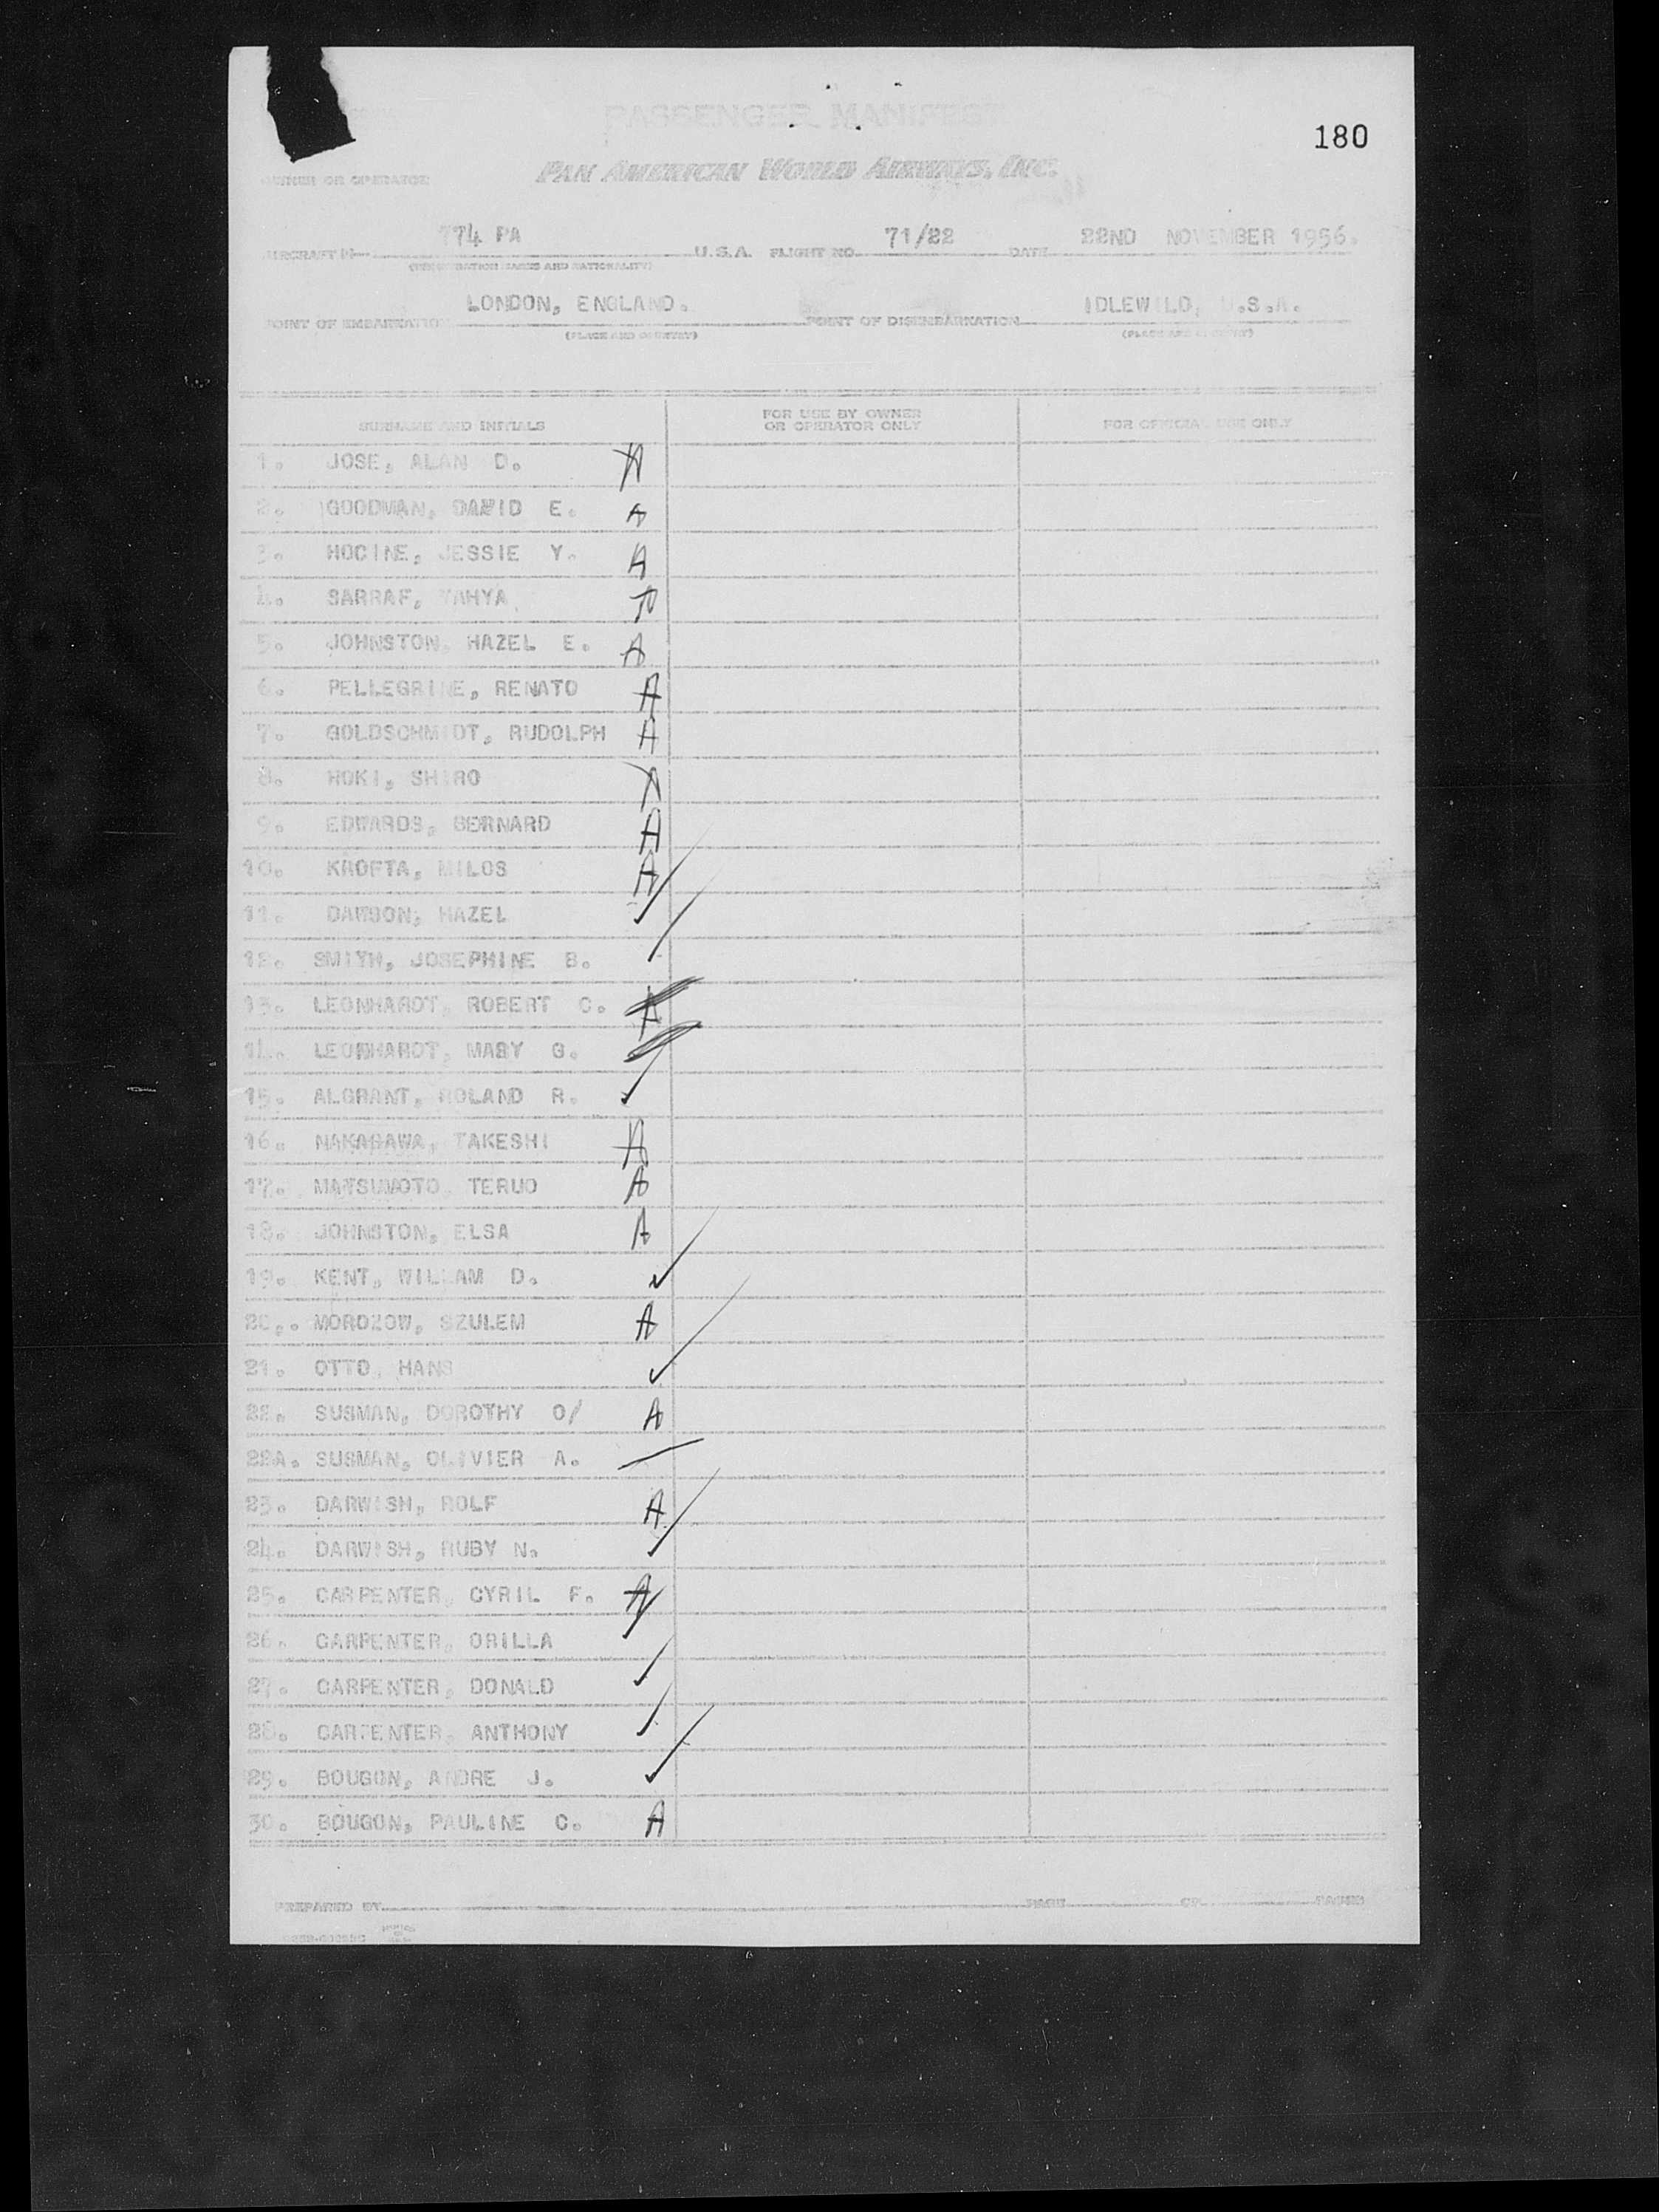 PASSENGER MANIFEST
180
OWNER OR OPERATOR PAN AMERICAN WORLD AIRWAYS, INC.
AIRCRAFT 774 PA U.S.A. FLIGHT NO. 71/22 DATE 22ND NOVEMBER 1956.
(REGISTRATION MARKS AND NATIONALITY)
POINT OF EMBARKATION LONDON, ENGLAND. POINT OF DISEMBARKATION IDLEWILD, U.S.A.
(PLACE AND COUNTRY) (PLACE AND COUNTRY)
SURNAME AND INITIALS FOR USE BY OWNER OR OPERATOR ONLY FOR OFFICIAL USE ONLY
1. JOSE, ALAN D. A
2. GOODMAN, DAVID E. A
3. HOCINE, JESSIE Y. A
4. SARRAF, YAHYA A
5. JOHNSTON, HAZEL E. A
6. PELLEGRINE, RENATO A
7. GOLDSCHMIDT, RUDOLPH A
8. HOKI, SHIRO A
9. EDWARDS, BERNARD A
10. KROFTA, MILOS A
11. DAWSON, HAZEL
12. SMITH, JOSEPHINE B.
13. LEONHARDT, ROBERT C. A
14. LEONHARDT, MARY G.
15. ALGRANT, ROLAND R.
16. NAKAGAWA, TAKESHI A
17. MATSUMOTO, TERUO A
18. JOHNSTON, ELSA A
19. KENT, WILLIAM D.
20.. MOROZOW, SZULEM A
21. OTTO, HANS
22. SUSMAN, DOROTHY O/ A
22A. SUSMAN, OLIVIER A.
23. DARWISH, ROLF A
24. DARWISH, RUBY N.
25. CARPENTER, CYRIL F. A
26. CARPENTER, ORILLA
27. CARPENTER, DONALD
28. CARPENTER, ANTHONY
29. BOUGON, ANDRE J.
30. BOUGON, PAULINE C. A
PREPARED BY PAGE OF PAGES